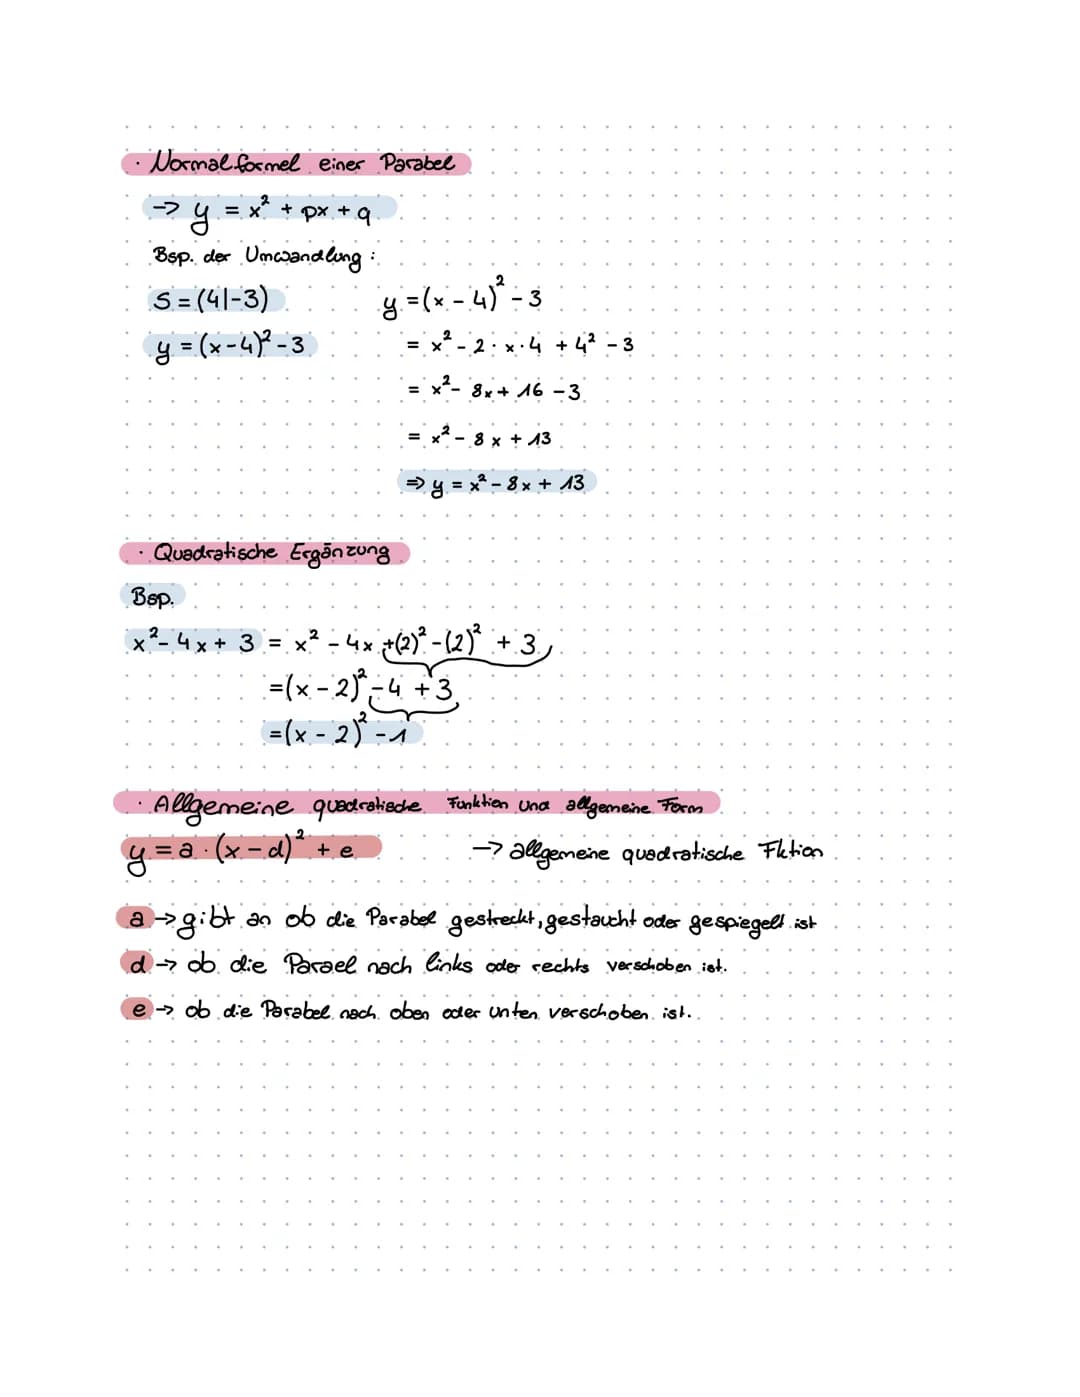 · Normalformel einer Parabel
→ y = x² + px + q
Bsp. der Umwandlung :
S = (4|-3)
y = (x-4)² - 3
y = (x - 4)² - 3
= x² - 2 · x · 4 + 4² - 3
= x² - 8x + 16 - 3
= x² - 8x + 13
⇒ y = x² - 8x + 13
· Quadratische Ergänzung
Bsp.
x² - 4x + 3 = x² - 4x +(2)² - (2)² + 3
=(x - 2)² - 4 + 3
=(x - 2)² - 1
· Allgemeine quadratische Funktion und allgemeine Form
y = a · (x - d)² + e → allgemeine quadratische Fktion
a → gibt an ob die Parabel gestreckt, gestaucht oder gespiegelt ist
d → ob die Parael nach links oder rechts verschoben ist.
e → ob die Parabel nach oben oder unten verschoben ist.